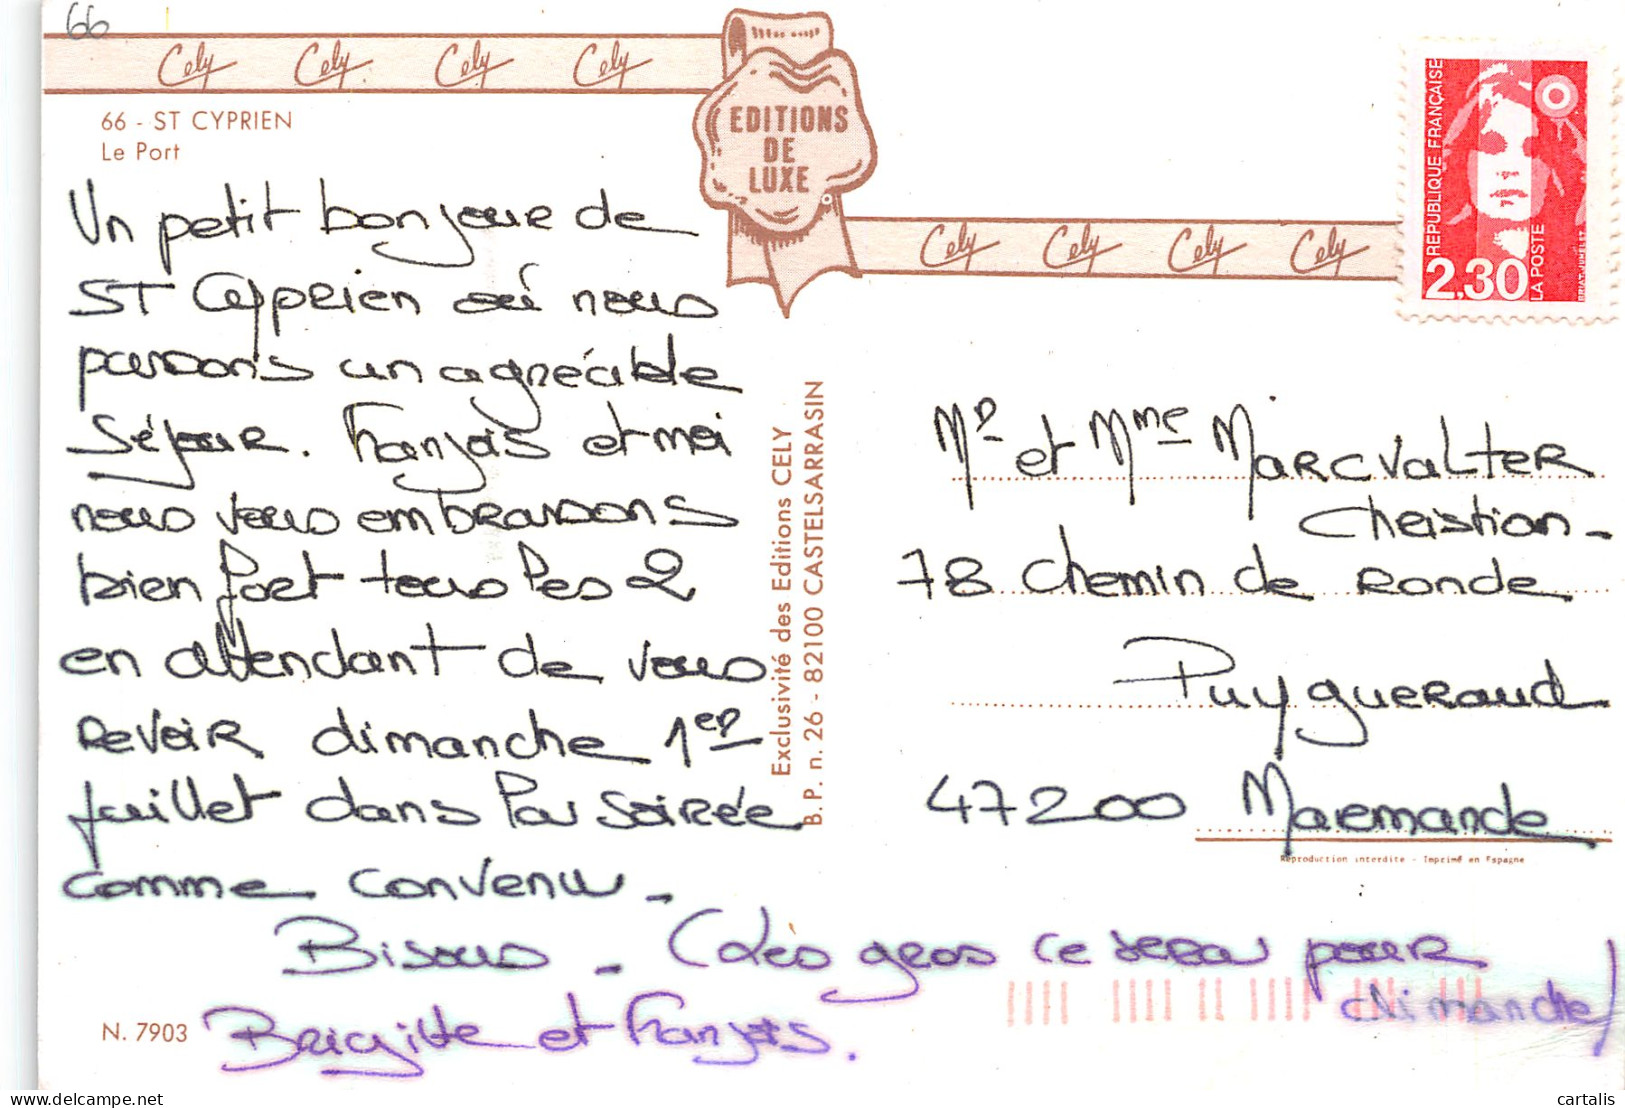 66
Cely Cely Cely Cely
EDITIONS
DE
LUXE
66 - ST CYPRIEN
Le Port
Un petit bonjour de
ST Cyprien où nous
passons un agréable
Séjour. François et moi
nous vous embrassons
bien fort tous les 2
en attendant de vous
revoir dimanche 1er
juillet dans la soirée
comme convenu -
Bisous - (Les gros ce sera pour
dimanche)
Brigitte et François.
N. 7903
Exclusivité des Editions CELY
B.P. n. 26 - 82100 CASTELSARRASIN
Cely Cely Cely Cely
REPUBLIQUE FRANÇAISE
2,30
LA POSTE
BRIAT-JUMELET
Mr et Mme MARCVALTER
Christian -
78 chemin de Ronde
Puygueraud
47200 Marmande
Reproduction interdite - Imprimé en Espagne
cartalis
delcampe.net